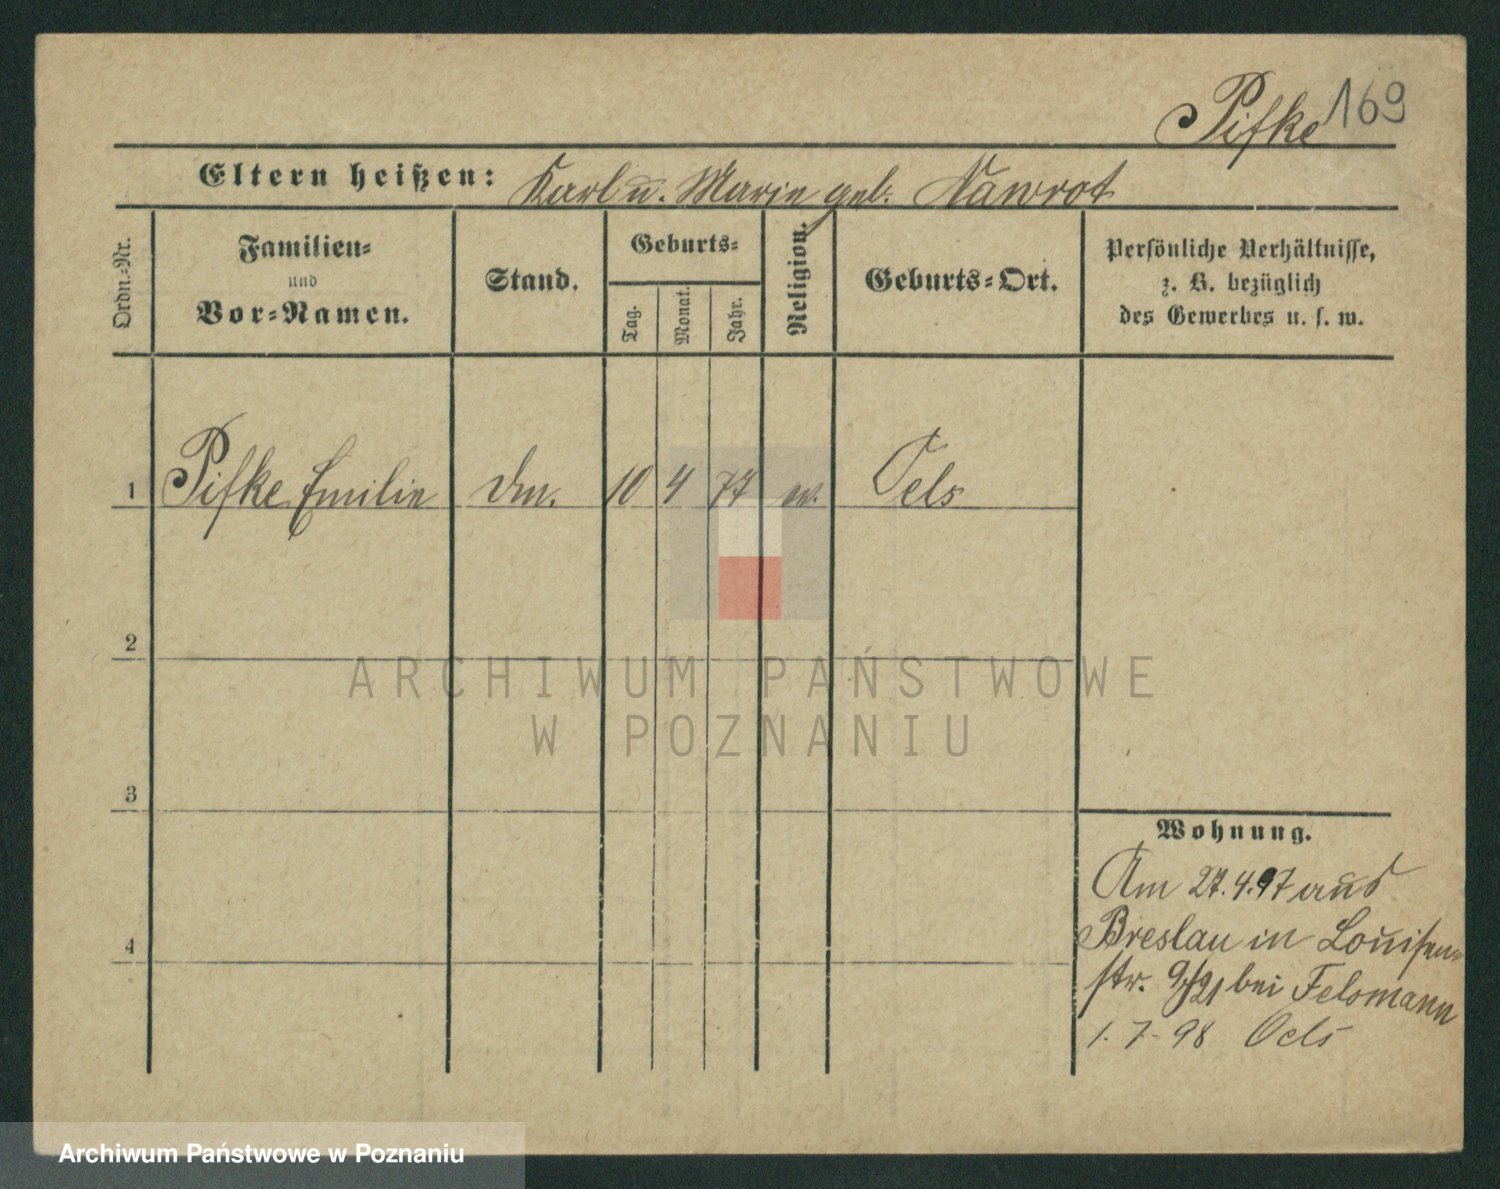 Pifke 169
Eltern heißen: Karl u. Marie geb. Nawrot
Ordn.-Nr.
Familien-
und
Vor-Namen.
Stand.
Geburts-
Tag.
Monat.
Jahr.
Religion.
Geburts-Ort.
Persönliche Verhältnisse,
z. B. bezüglich
des Gewerbes u. s. w.
1 Pifke Emilie 10 4 77 Oels
2
3
4
Wohnung.
Am 27.4.97 aus
Breslau in Louisen-
str. bei Felsmann
1. 7. 98 Oels
ARCHIWUM PAŃSTWOWE
W POZNANIU
Archiwum Państwowe w Poznaniu